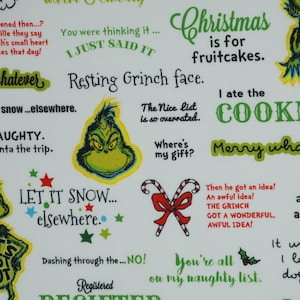 You were thinking it ...
I JUST SAID IT
Christmas
is for
fruitcakes.
ened then...?
ille they say
h's small heart
sizes that day!
whatever
Resting Grinch face.
I ate the
COOK
snow ...elsewhere.
The Nice list
is so overrated.
AUGHTY.
nta the trip.
Where's
my gift?
Merry wha
LET IT SNOW...
elsewhere.
Then he got an idea!
An awful idea!
THE GRINCH
GOT A WONDERFUL
AWFUL IDEA!
Dashing through the...NO!
You're all
on my naughty list.
It w
Registered
REGISTER